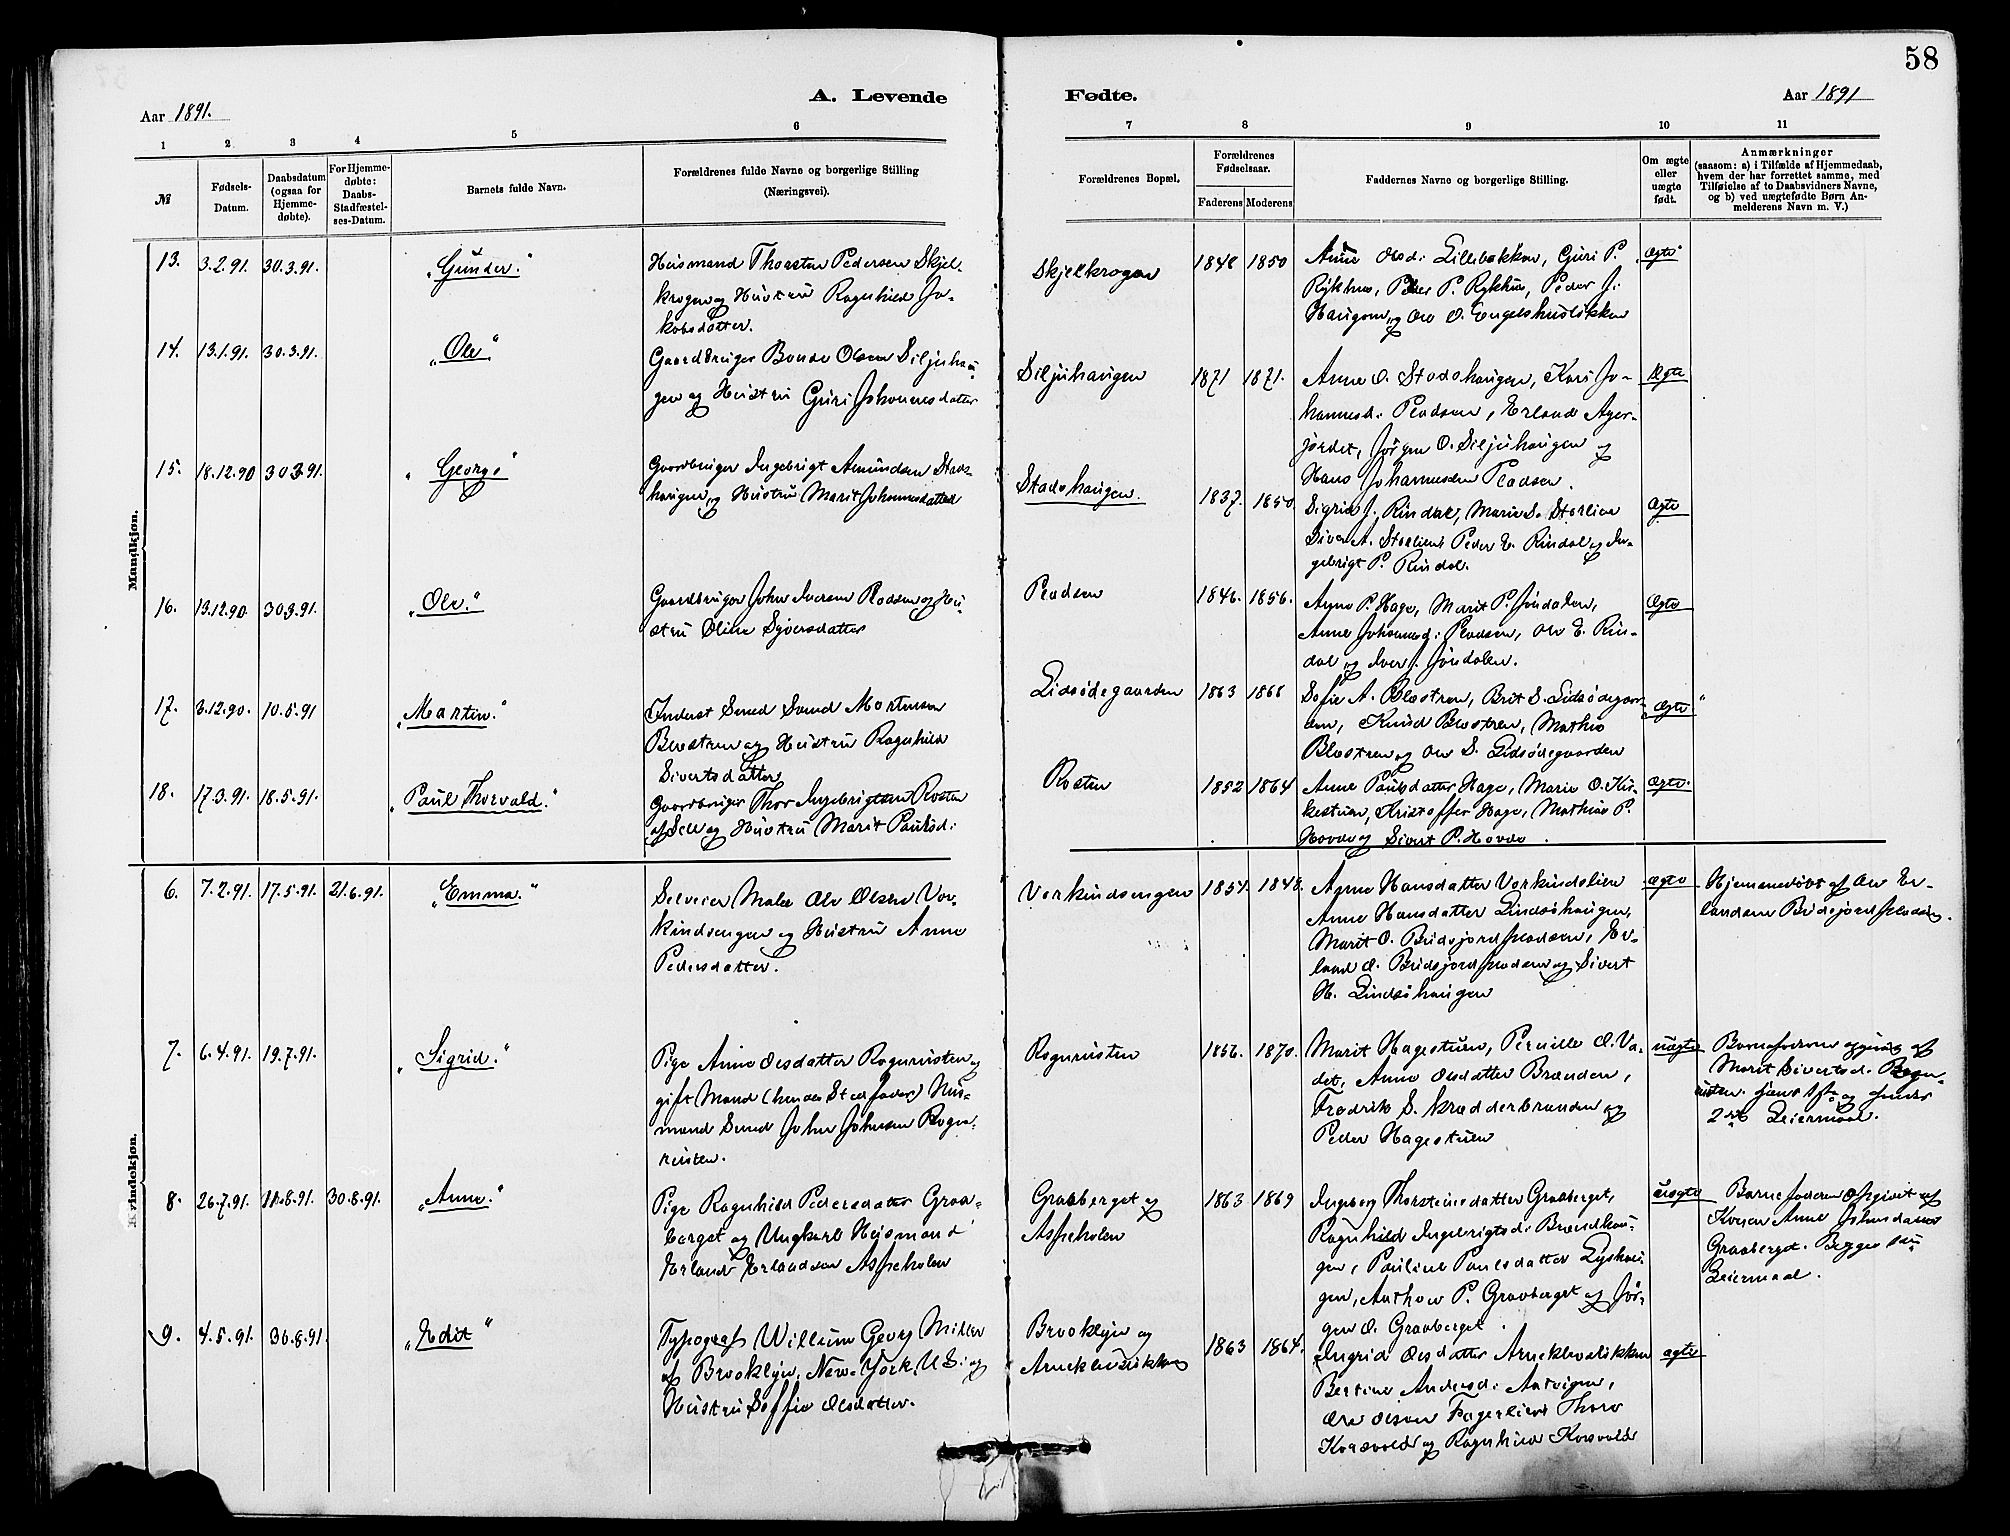 58
Aar 1891.
A. Levende
Fødte.
Aar 1891
1
2.
3
4
5
6
7
8
9
10
11
№
Fødsels-
Datum.
Daabsdatum
(ogsaa for
Hjemme-
døbte).
For Hjemme-
døbte:
Daabs-
Stadfæstel-
ses-Datum.
Barnets fulde Navn.
Forældrenes fulde Navne og borgerlige Stilling
(Næringsvei).
Forældrenes Bopæl.
Forældrenes
Fødselsaar.
Faderens
Moderens
Faddernes Navne og borgerlige Stilling.
Om ægte
eller
uægte
født.
Anmærkninger
(saasom: a) i Tilfælde af Hjemmedaab,
hvem der har forrettet samme, med
Tilføielse af to Daabsvidners Navne,
og b) ved uægtefødte Børn An-
melderens Navn m. V.)
Mandkjøn.
13.
3.2.91.
30.3.91.
"Gunder."
Husmand Thorsten Pedersen Skjel-
krogen og Hustru Ragnhild Ja-
kobsdatter.
Skjelkrogen
1848
1850
Anne Olsd: Lillebakken, Guri P.
Rykhus, Peder P. Rykhus, Peder J.
Haugen, og Ole O. Engelshuslikken
Ægte
14.
13.1.91.
30.3.91.
"Ole"
Gaardbruger Bonde Olsen Siljuhau-
gen og Hustru Guri Johannesdatter
Siljuhaugen
1871
1871.
Anne O. Stadshaugen, Kari Jo-
hannesd: Pladsen, Erland Ager-
jordet, Jørgen O. Siljuhaugen og
Hans Johannesen Pladsen.
Ægte
15.
18.12.90
30.3.91.
"George"
Gaardbruger Ingebrigt Amundsen Stads-
haugen, og Hustru Marit Johannesdatter
Stadshaugen.
1837.
1850
Sigrid J. Rindal, Marie S. Storlien
Siver A. Storlien, Peder E. Rindal og In-
gebrigt P. Rindal.
Ægte
16.
13.12.90
30.3.91.
"Ole."
Gaardbruger John Iversen Pladsen og Hu-
stru Oline Syversdatter
Pladsen
1846.
1856.
Anne P. Hage, Marit P. Jøndalen,
Anne Johannesd: Pladsen, Ole E. Rin-
dal og Iver J. Jøndalen.
Ægte
17.
3.12.90.
10.5.91
"Martin."
Inderst Smed Svend Mortensen
Blæstren og Hustru Ragnhild
Sivertsdatter
Lidsødegaarden
1863
1868
Sofie A. Blæstren, Brit S. Lidsødegaar-
den, Knud Blæstren, Mathis
Blæstren og Ole S. Lidsødegaarden
Ægte
18.
17.3.91.
18.5.91.
"Paul Thorvald."
Gaardbruger Thor Ingebrigtsen Rosten
af Sel og Hustru Marit Paulsd:
Rosten
1852
1864
Anne Paulsdatter Hage, Marie O. Kir-
kestuen, Kristoffer Hage, Mathias P.
Hovde og Sivert P. Hovde.
Ægte.
Kvindekjøn.
6.
7.2.91.
17.5.91.
21.6.91.
"Emma."
Selveier Maler Ole Olsen Vor-
kindsengen og Hustru Anne
Pedersdatter.
Vorkindsengen
1854.
1848.
Anne Hansdatter Vorkindslien
Anne Hansdatter Lindsøhaugen,
Marit O. Bridsjordspladsen, Er-
land O. Bridsjordspladsen og Sivert
H. Lindsøhaugen
ægte
Hjemmedøbt af Ole Er-
landsen Bridsjordspladsen.
7.
6.4.91.
19.7.91.
"Sigrid."
Pige Anne Olsdatter Rognrusten og
gift Mand (hendes Stedfader) Hus-
mand Smed John Johnsen Rogn-
rusten.
Rognrusten
1856.
1870.
Marit Hagestuen, Pernille O. Va-
det, Anne Olsdatter Brænden,
Fredrik S. Skrædderbrænden og
Peder Hagestuen
uægte
Barnefaderen opgivet af
Marit Sivertsd. Rogn-
rusten. Hans 1ste og hendes
2det Leiermaal.
8.
26.7.91.
11.8.91.
30.8.91.
"Anne."
Pige Ragnhild Pedersdatter Graa-
berget og Ungkarl Husmand
Erland Erlandsen Aspeholen
Graaberget og
Aspeholen
1863
1869
Ingeborg Thorsteinsdatter Graaberget,
Ragnhild Ingebrigtsd: Brændhau-
gen, Pauline Paulsdatter Lyshau-
gen, Anthon P. Graaberget og Jør-
gen O. Graaberget.
uægte
Barnefaderen opgivet af
Konen Anne Johnsdatter
Graaberget. Begges 1ste
Leiermaal.
9.
4.5.91.
30.8.91.
"Edit"
Typograf Willum Georg Miller
af Brooklyn, New-York, U.S: og
Hustru Soffie Olsdatter.
Brooklyn og
Arneklevslikken
1863
1864.
Ingrid Olsdatter Arneklevslikken
Bertine Andersd: Antvigen,
Ole Olsen Fagerlien, Thore
Korsvold og Ragnhild Korsvold
ægte